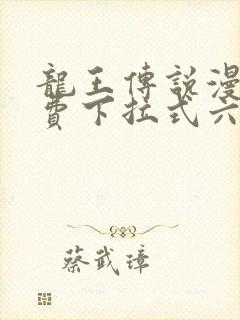 龍王傳說漫
費下拉式六
蔡武璋